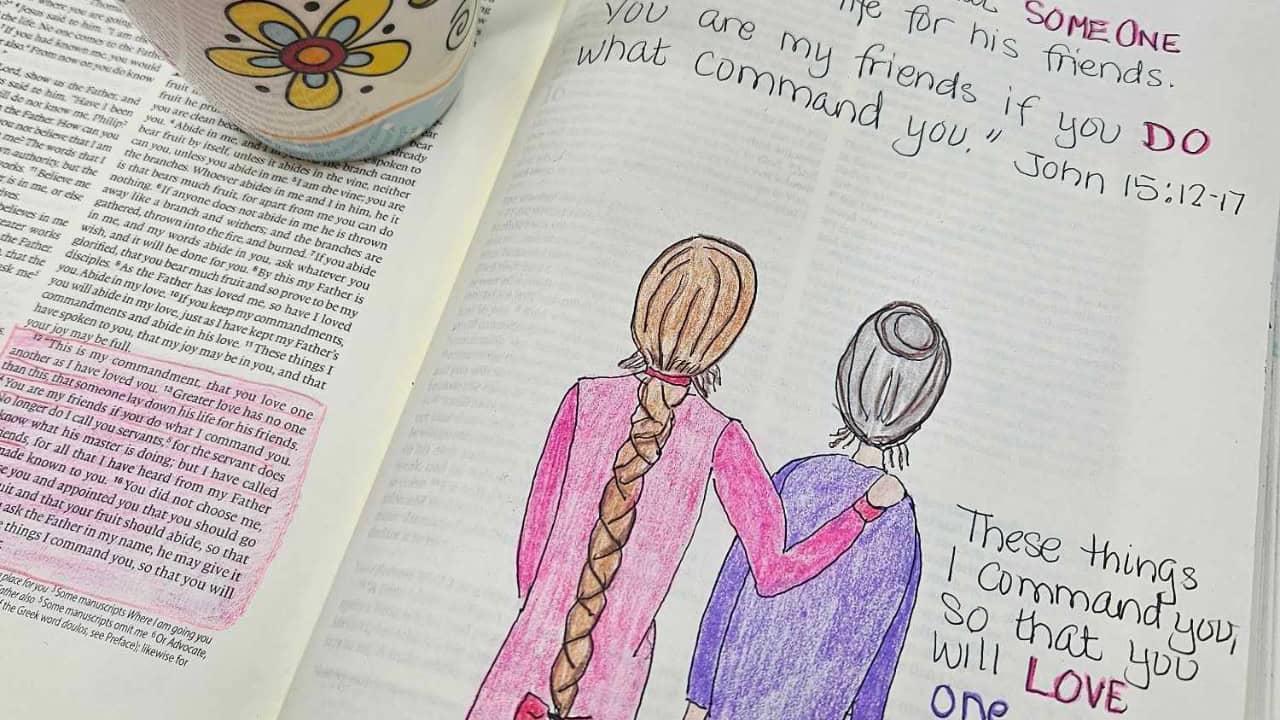 Where you are going
Jesus said to him, "I am
life. No one comes to the Father
If you had known me, you would
also. From now on you do know
Lord, show us the Father, and
said to him, "Have I been
do not know me, Philip?
the Father. How can you
not believe that I am
me? The words that I
own authority, but the
works. 11 Believe me
is in me, or else
believes in me
greater works
the Father.
that the
ask me
fruit
fruit he
you are clean
you. 4 Abide in me, and I
already
bear fruit by itself, unless it abides in the vine, neither
can you, unless you abide in me. 5 I am the vine; you are
the branches. Whoever abides in me and I in him, he it
is that bears much fruit, for apart from me you can do
nothing. 6 If anyone does not abide in me he is thrown
away like a branch and withers; and the branches are
gathered, thrown into the fire, and burned. 7 If you abide
in me, and my words abide in you, ask whatever you
wish, and it will be done for you. 8 By this my Father is
glorified, that you bear much fruit and so prove to be my
disciples. 9 As the Father has loved me, so have I loved
you. Abide in my love. 10 If you keep my commandments,
you will abide in my love, just as I have kept my Father's
commandments and abide in his love. 11 These things I
have spoken to you, that my joy may be in you, and that
your joy may be full.
12 "This is my commandment, that you love one
another as I have loved you. 13 Greater love has no one
than this, that someone lay down his life for his friends.
You are my friends if you do what I command you.
No longer do I call you servants, for the servant does
know what his master is doing; but I have called
friends, for all that I have heard from my Father
made known to you. 16 You did not choose me,
you and appointed you that you should go
fruit and that your fruit should abide, so that
ask the Father in my name, he may give it
things I command you, so that you will
place for you 3 Some manuscripts Where I am going you
Father also 5 Some manuscripts omit me 6 Or Advocate,
the Greek word doulos, see Preface); likewise for
SOMEONE
life for his friends.
You are my friends if you DO
what command you."
John 15:12-17
These things
I command you,
So that you
will LOVE
one